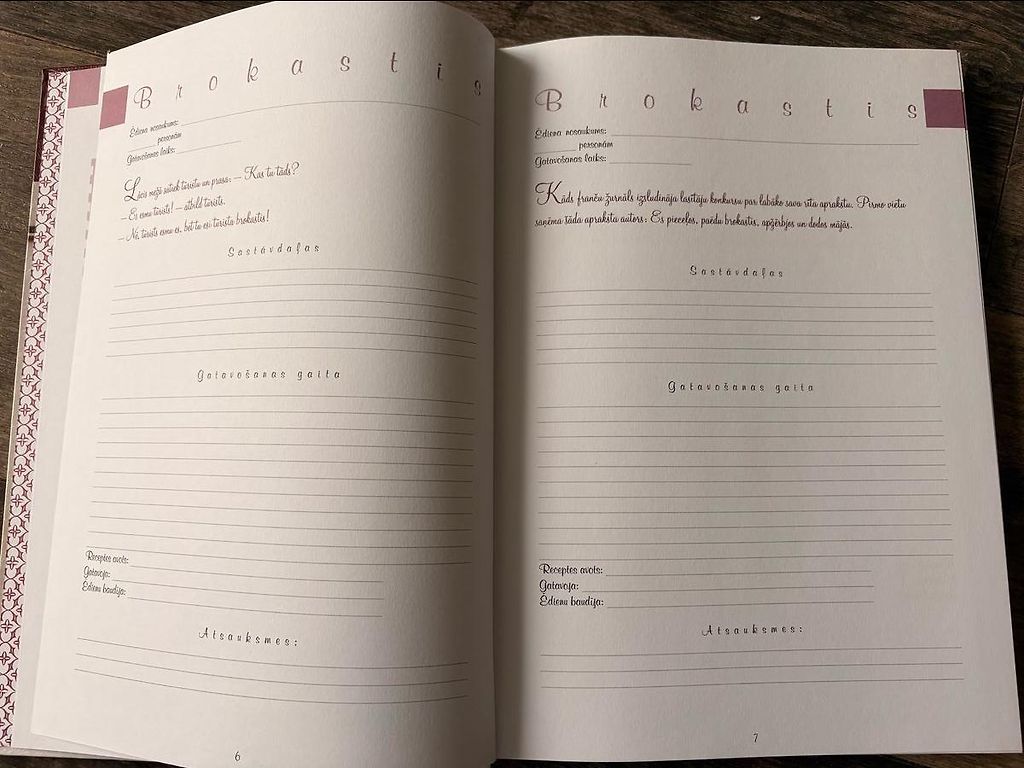 Brokastis
Ēdiena nosaukums:
personām
Gatavošanas laiks:
Lācis mežā satiek tūristu un prasa: – Kas tu tāds?
– Es esmu tūrists! – atbild tūrists.
– Nē, tūrists esmu es, bet tu esi tūrista brokastis!
Sastāvdaļas
Gatavošanas gaita
Receptes avots:
Gatavoja:
Ēdienu baudīja:
Atsauksmes:
6
Brokastis
Ēdiena nosaukums:
personām
Gatavošanas laiks:
Kāds franču žurnāls izsludināja lasītāju konkursu par labāko sava rīta aprakstu. Pirmo vietu
saņēma šāda apraksta autors: Es pieceļos, paēdu brokastis, apģērbjos un dodos mājās.
Sastāvdaļas
Gatavošanas gaita
Receptes avots:
Gatavoja:
Ēdienu baudīja:
Atsauksmes:
7